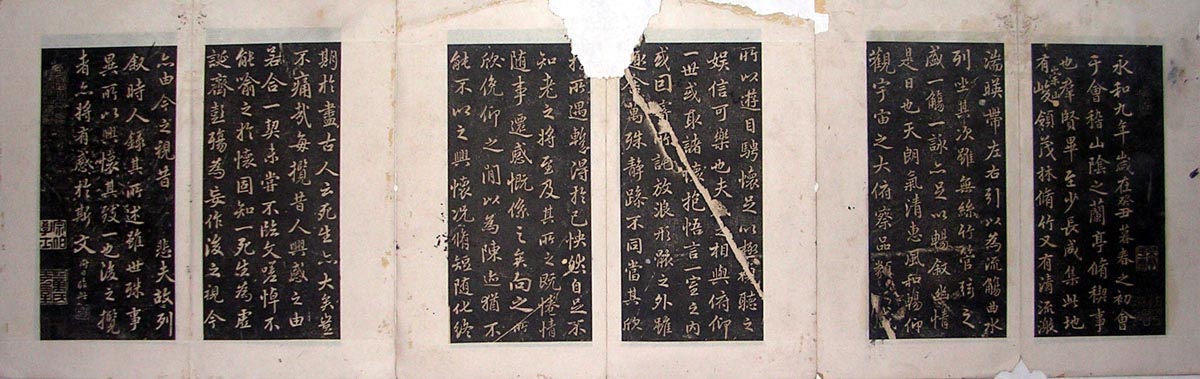 永和九年歲在癸丑暮春之初會
于會稽山陰之蘭亭脩禊事
也羣賢畢至少長咸集此地
有崇山峻領茂林脩竹又有清流激
湍暎帶左右引以為流觴曲水
列坐其次雖無絲竹管弦之
盛一觴一詠亦足以暢叙幽情
是日也天朗氣清惠風和暢仰
觀宇宙之大俯察品類之盛
所以遊目騁懷足以極聽之
娛信可樂也夫之相與俯仰
一世或取諸懷抱悟言一室之內
或因託放浪形骸之外雖
趣萬殊靜躁不同當其欣
於所遇蹔得於己怏然自足不
知老之將至及其所之既惓情
随事遷感慨係之矣向之所
欣俛仰之閒以為陳迹猶不
能不以之興懷況脩短随化終
期於盡古人云死生亦大矣豈
不痛哉每攬昔人興感之由
若合一契未嘗不臨文嗟悼不
能喻之於懷固知一死生為虛
誕齊彭殤為妄作後之視今
亦由今之視昔悲夫故列
叙時人錄其所述雖世殊事
異所以興懷其致一也後之攬
者亦將有感於斯文